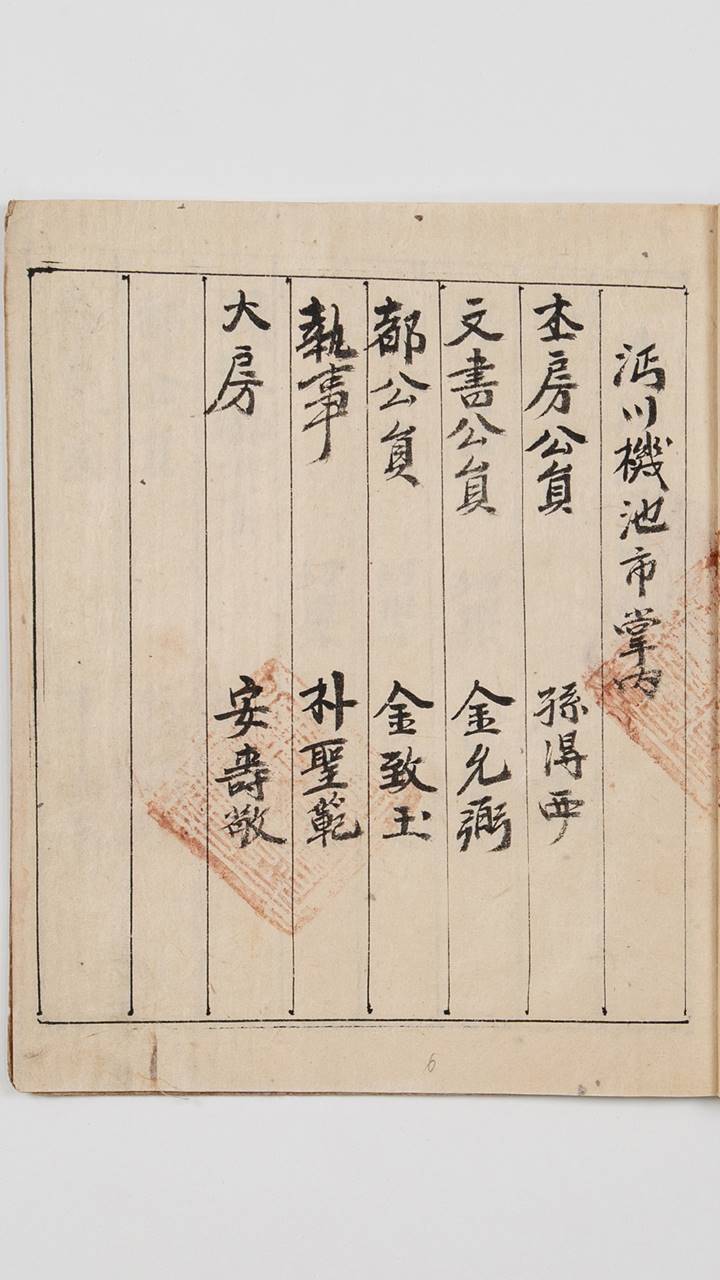 沔川機池市掌內
本房公員 孫得
文書公員 金允弼
都公員 金致玉
執事 朴聖範
大房 安壽敬
6